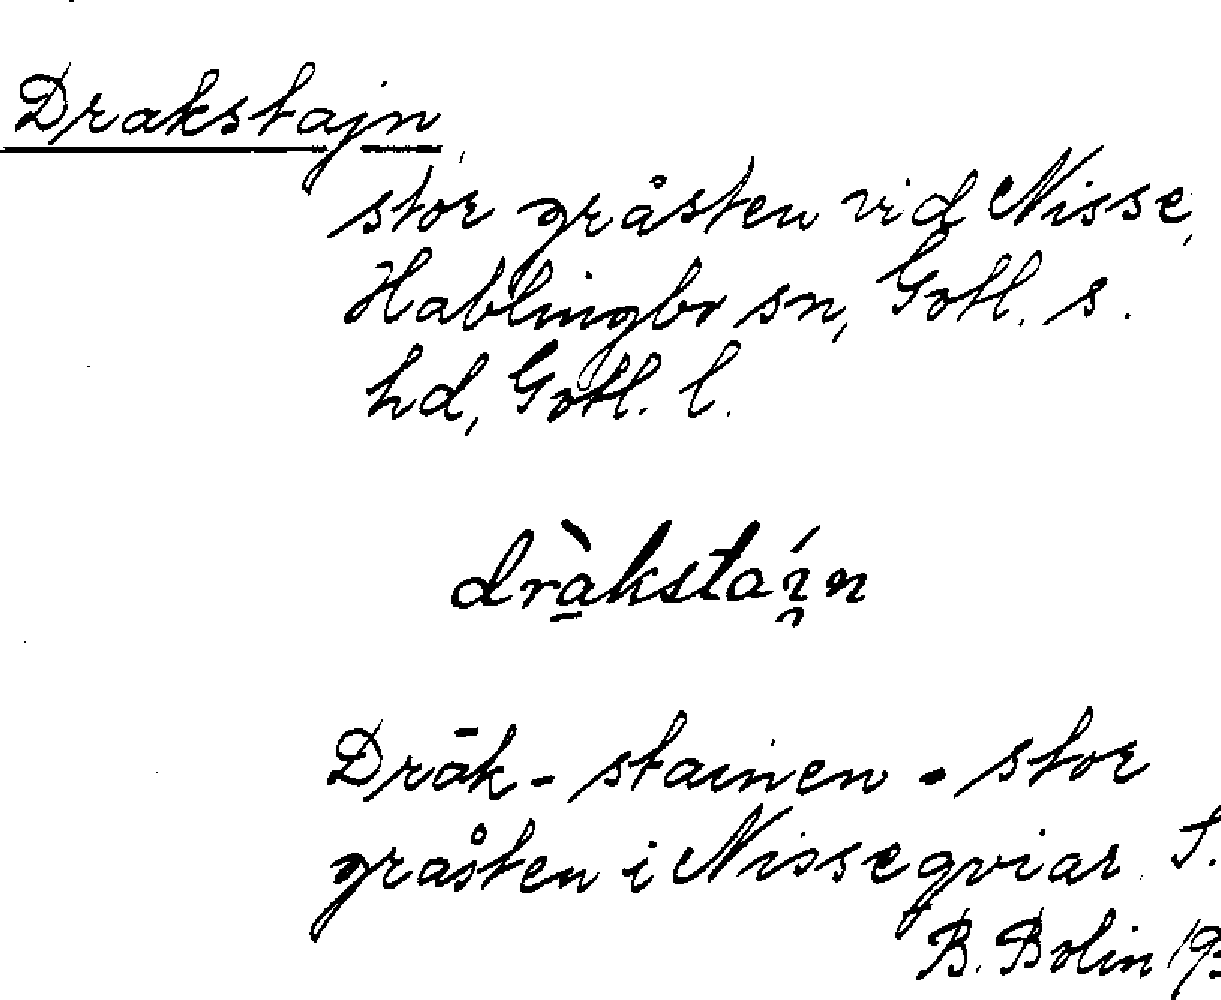 Drakstajn,
stor gråsten vid Nisse,
Hablingbo sn, Gotl. s.
hd, Gotl. l.
drà̱kstaí̯n
Drāk-stainen - stor
gråsten i Nisseqviar. S.
B. Bolin